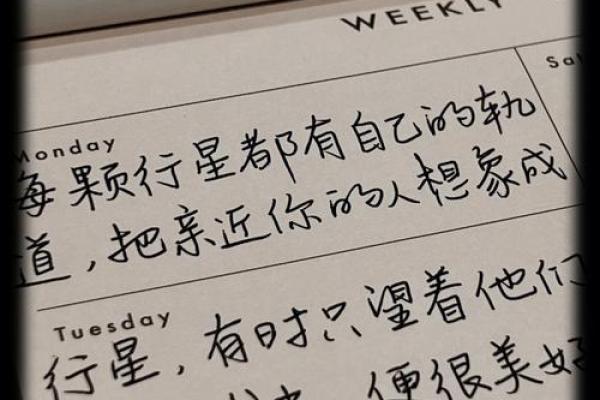 WEEKLY
Monday
Sat
每颗行星都有自己的轨
道，把亲近你的人想象成
Tuesday
行星，有时只望着他们
便很美好